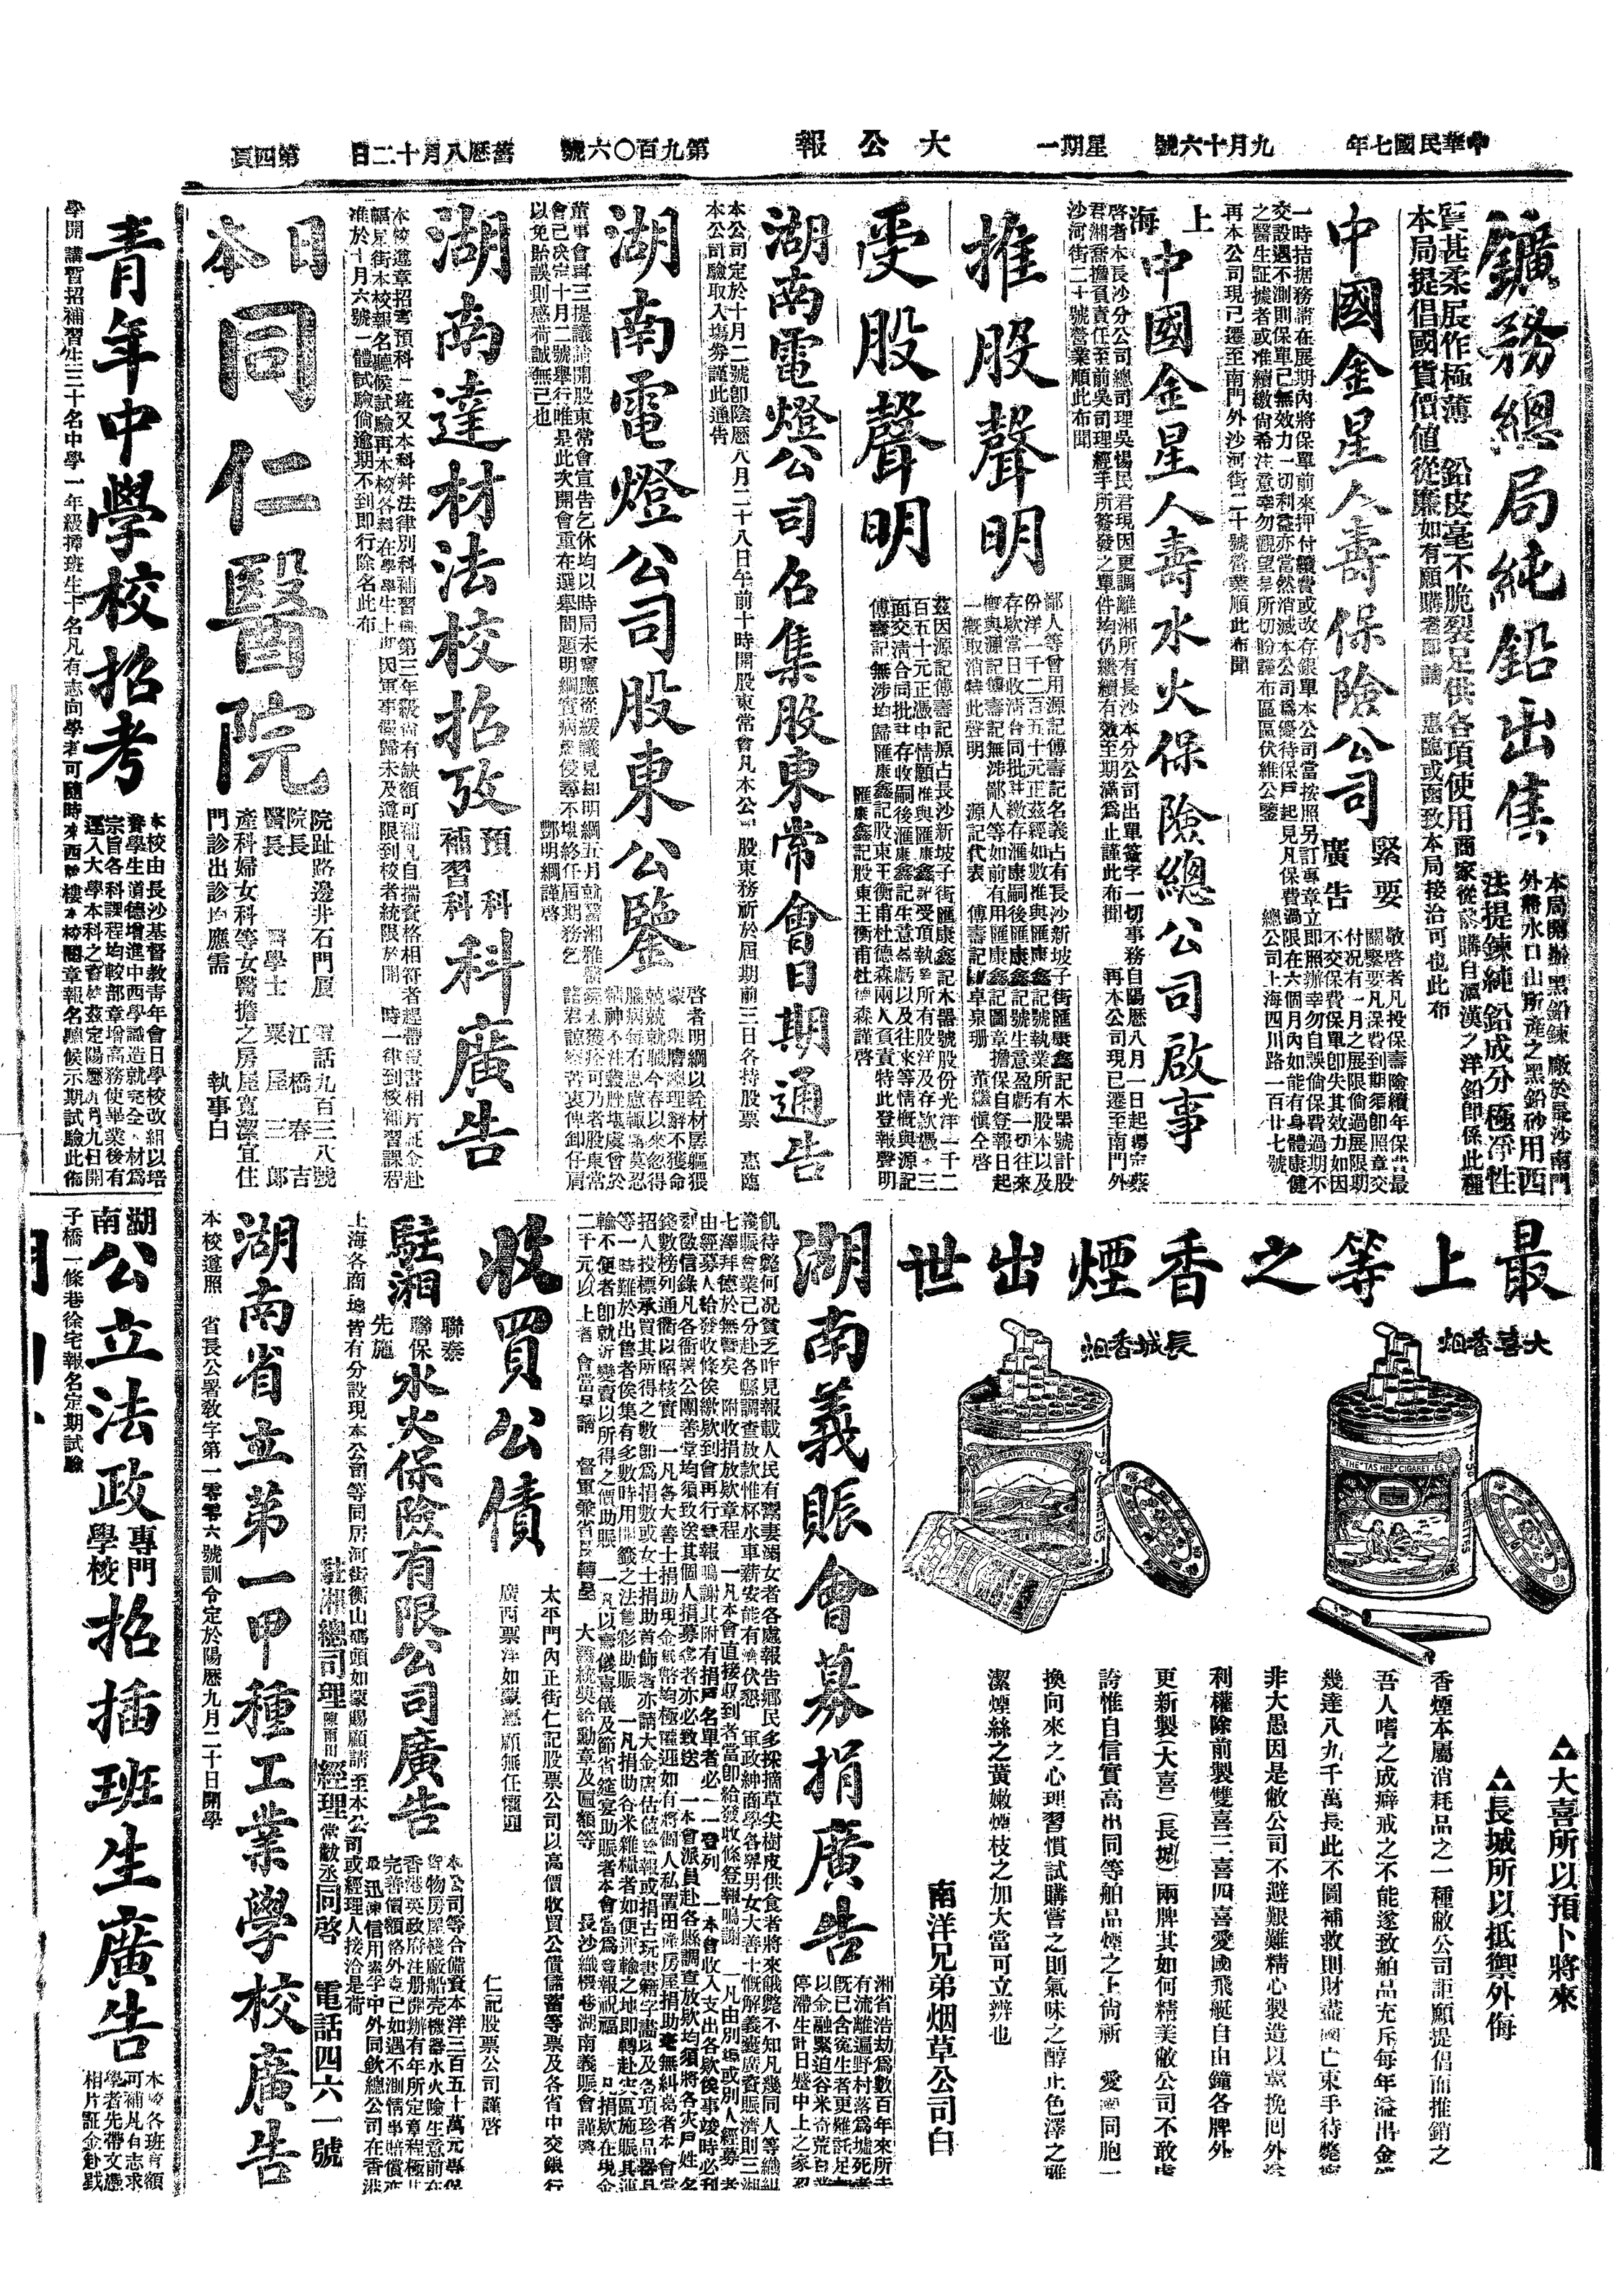 中華民國七年
九月十六號
星期一
大公報
第九百〇六號
舊歷八月十二日
第四頁
鑛務總局純鉛出售
本局開辦黑鉛鍊廠於長沙南門
外將水口山所產之黑鉛砂用西
法提鍊純鉛成分極凈性
質甚柔展作極薄鉛皮毫不脆裂足供各項使用商家從 購自滬漢之洋鉛卽係此種
本局提倡國貨價値從廉如有願購者卽請惠臨或函致本局接洽可也此布
中國金星人壽保險公司
緊要廣告
敬啓者凡投保壽險續年保費最
關緊要凡保費到期須卽照章交
付況有一月之展限倘過展限期
不交保費保單卽失其效力如因
一時拮据務請在展期內將保單前來押付續費或改存銀單本公司當按照另訂專章立卽照辦幸勿自誤倘保費過期不
交設遇不測則保單已無效力一切利益亦當然消滅本公司爲優待保戶起見凡保費過限在六個月內如能有身體康健
之醫生証據者或准續繳尙希注意幸勿觀望是所切盼謹布區區伏維公鑒
總公司上海四川路一百廿七號
再本公司現已遷至南門外沙河街二十號營業順此布聞
上海中國金星人壽水火保險總公司啟事
啓者本長沙分公司總司理吳惕民君現因更調離湘所有長沙本分公司出單簽字一切事務自陽歷八月一日起 蔡
君湘喬擔負責任至前吳司理經手所簽發之單件均仍繼續有效至期滿爲止謹此布聞 再本公司現已遷至南門外
沙河街二十號營業順此布聞
推股聲明
鄙人等曾用源記傅壽記名義占有長沙新坡子街匯康鑫記木器號計股
份洋一千二百五十元正茲經如數推與匯康鑫記號執業所有股本以及
存欵當日收淸合同批註繳存滙康嗣後匯康鑫記號生意盈虧一切往來
槪與源記傅壽記無涉鄙人等如前有用匯康鑫記圖章擔保自登報日起
一槪取消特此聲明 源記代表 傅壽記 卓泉珊 董繼愼仝啓
受股聲明
茲因源記傅壽記原占長沙新坡子街匯康鑫記木器號股份光洋一千二
百五十元正憑中情願推與匯康鑫記受頂執業所有股洋及存欵憑三
面交淸合同批註存收嗣後滙康鑫記生意盈虧以及往來等情槪與源記
傅壽記無涉均歸匯康鑫記股東王衡甫杜德森兩人負責特此登報聲明
匯康鑫記股東王衡甫杜德森謹啓
湖南電燈公司召集股東常會日期通告
本公司定於十月二號卽陰歷八月二十八日午前十時開股東常會凡本公司股東務祈於屆期前三日各持股票惠臨
本公司驗取入塲劵謹此通告
湖南電燈公司股東公鑒
啓者明綱以詅材罷軀猥
蒙 總理辭不獲命
兢兢就職今春以來忽得
腦病
董事會再三提議請開股東常會宣告乞休均以時局未寗應從緩議見却明綱五月就醫湘雅醫
會已决定十月二號舉行唯是此次開會重在選舉問題明綱實病 侵尋不堪終任屆期務乞
以免貽誤則感荷誠無已也 鄧明綱謹啓
湖南達材法校招攷預科補習科科廣告
本校遵章招考預科一班又本科幷法律別科補習班第三年級尙有缺額可補凡自揣資格相符者趕帶證書相片証金赴
犀星街本校報名聽候試驗再本校各科在學學生上期因軍事催歸未及遵限到校者統限於開 時一律到校補習課程
准於十月六號一體試驗倘逾期不到卽行除名此布
日本同仁醫院
院趾路邊井石門廣 電話九百三八號
院長 江橋春吉
醫長 醫學士 栗屋三郎
產科婦女科等女醫擔之房屋寬潔宜住
門診出診均應需 執事白
青年中學校招考
本校由長沙基督教靑年會日學校改組以培
養學生道德增進中西學識造就完全人材爲
宗旨各科課程均較部章增高務使畢業後有
逕入大學本科之資格茲定陽歷九月九日開
學開講暫招補習生三十名中學一年級揷班生十名凡有志向學者可隨時來西牌樓本校閱章報名聽候示期試驗此佈
最上等之香煙出世
大喜香烟
長城香烟
THE "TAS HEE" CIGARETTES
▲大喜所以預卜將來
▲長城所以抵禦外侮
香煙本屬消耗品之一種敝公司詎願提倡而推銷之
吾人嗜之成癖戒之不能遂致舶品充斥每年溢出金錢
幾達八九千萬長此不圖補救則財盡國亡束手待斃
非大愚因是敝公司不避艱難精心製造以冀挽囘外溢
利權除前製雙喜三喜四喜愛國飛艇自由鐘各牌外
更新製(大喜)(長城)兩牌其如何精美敝公司不敢虛
誇惟自信實高出同等舶品煙之上尙祈 愛國同胞一
換向來之心理習慣試購嘗之則氣味之醇正色澤之雅
潔煙絲之黃嫩煙枝之加大當可立辨也
南洋兄弟烟草公司白
湖南義賑會募捐廣告
湘省浩劫爲數百年來所未
有流離遍野村落爲墟死者
旣已含寃生者更難託足
以金融緊迫谷米奇荒百業
停滯生計日蹙中上之家忍
飢待斃何况貧乏昨見報載人民有鬻妻溺女者各處報告鄕民多採摘草尖樹皮供食者將來餓斃不知凡幾同人等組織
義賑會業已分赴各縣調查放欵惟杯水車薪安能有濟伏懇 軍政紳商學各界男女大善士慨解義囊廣資賑濟則三湘
七澤拜德於無旣矣 附收捐放欵章程 一凡本會直接收到者當卽給發收條登報鳴謝 一凡由別埠或別人經募者
由經募人給發收條俟繳欵到會再行登報鳴謝其附有捐戶名單者必一一登列 一本會收入支出各欵俟事竣時必刊
刻徵信錄凡各衙署公團善堂均須致送其個人捐募多者亦必致送 一本會派員赴各縣調查放欵均須將各灾戶姓名
錢數榜列通衢以昭核實 一凡各大善士捐助現金 幣均極歡迎如有將個人私置田產房屋捐助毫無糾葛者本會當
招人投標承買其所得之數卽爲捐數或女士捐助首飾者亦請大金店估値登報或捐古玩書籍字畫以及各項珍品器具
等一時難於出售者俟集有多數時用開籤之法售彩助賑 一凡捐助谷米雜糧者如便運輸之地卽轉赴灾區施賑其運
輸不便者卽就近變賣以所得之價助賑 一凡以壽儀喜儀及節省筵宴助賑者本會當爲登報祝福 一凡捐欵在現金
二千元以上者會當呈請 督軍兼省長轉呈 大總統奬給勳章及匾額等 長沙織機巷湖南義賑會謹興
收買公債
太平門內正街仁記股票公司以高價收買公債儲蓄等票及各省中交銀行
廣西票洋如蒙惠顧無任懽迎
仁記股票公司謹啓
駐湘聯泰聯保先施水火保險有限公司廣告
本公司等合備資本洋三百五十萬元專保
貨物房屋棧廠船壳機器水火險生意前在
香港英政府注册開辦有年所定章程極其
完善價額格外克己如遇不測情事賠償亦
最迅速信用素孚中外同欽總公司在香港
上海各商埠皆有分設現本公司等同居河街衡山碼頭如蒙賜顧請至本公司或經理人接洽是荷
駐湘總司理陳雨田 經理常勤丞同啓 電話四六一號
湖南省立第一甲種工業學校廣告
本校遵照 省長公署敎字第一零零六號訓令定於陽歷九月二十日開學
湖南公立法政專門學校招插班生廣告
本校各班有額
可補凡有志求
學者先帶文憑
相片証金赴戥
子橋一條巷徐宅報名定期試驗